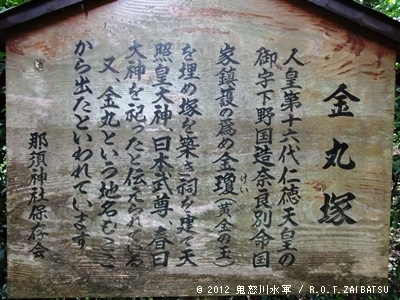 金丸塚
人皇第十六代仁徳天皇の
御宇下野国造奈良別命国
家鎮護の為め金瓊(黄金の玉)
けい
を埋め塚を築き祠を建て天
照皇大神、日本武尊、春日
大神を祀ったと伝えられている
又、金丸という地名もここ
から出たといわれています
那須神社保存会
© 2012 鬼怒川水軍 / R.O.T.ZAIBATSU